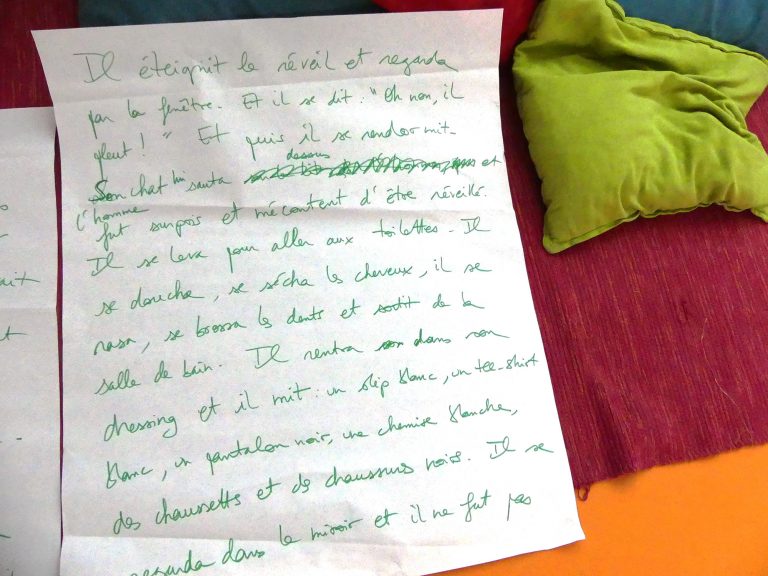 Il éteignit le réveil et regarda
par la fenêtre. Et il se dit : "Oh non, il
pleut ! " Et puis il se rendormit.
dessus
Son chat lui sauta et
l'homme
fut surpris et mécontent d'être réveillé.
Il se leva pour aller aux toilettes. Il
se doucha, se sécha les cheveux, il se
rasa, se brossa les dents et sortit de la
salle de bain. Il rentra dans son
dressing et il mit : un slip blanc, un tee-shirt
blanc, un pantalon noir, une chemise blanche,
des chaussettes et des chaussures noires. Il se
regarda dans le miroir et il ne fut pas
ait